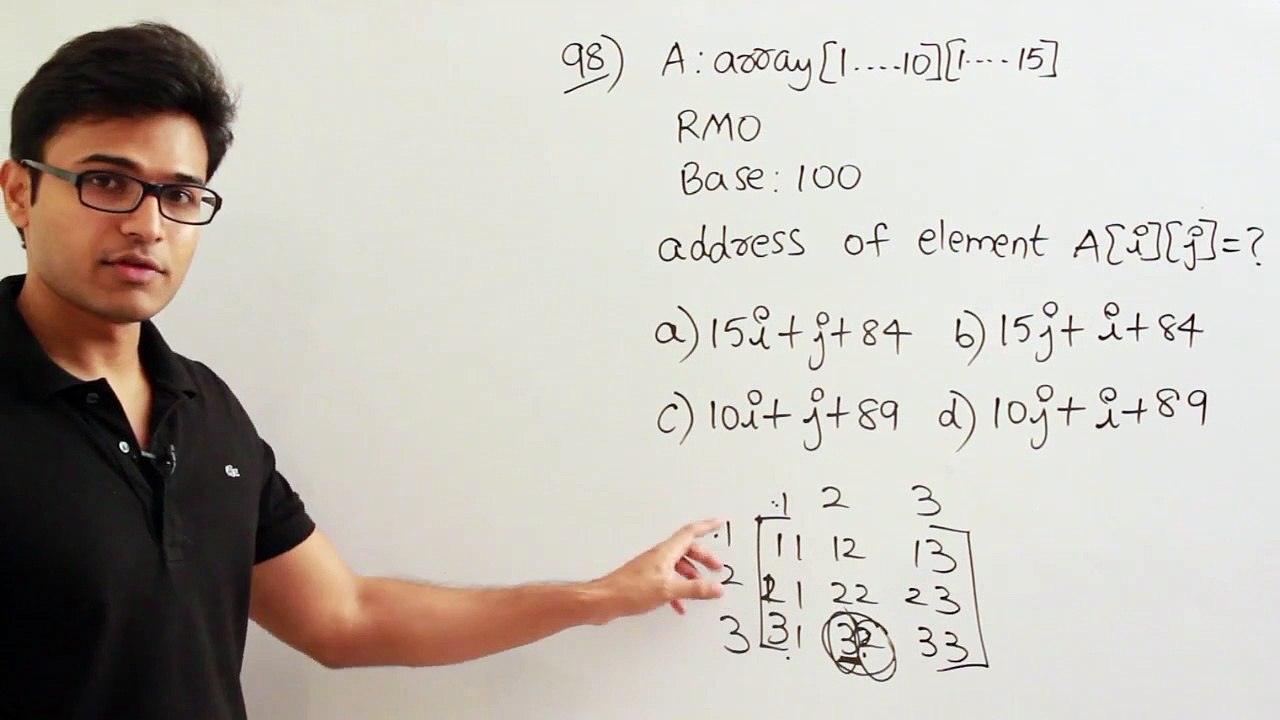 98) A : array [1....10][1....15]
RMO
Base: 100
address of element A[i][j]=?
a) 15i+j+84 b) 15j+i+84
c) 10i+j+89 d) 10j+i+89
1 2 3
1 11 12 13
2 21 22 23
3 31 32 33